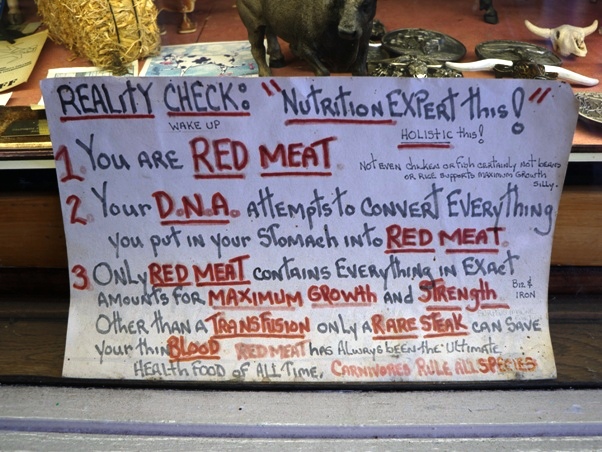 REALITY CHECK: "NUTRITION EXPERT this!"
WAKE UP
HOLISTIC this!
1. YOU ARE RED MEAT.
NOT EVEN chicken OR fish certainly not beans
OR RICE SUPPORTS MAXIMUM GROWTH
SILLY.
2. YOUR D.N.A. attempts to CONVERT EVERYthing
you put in your Stomach into RED MEAT.
3 ONLY RED MEAT CONTAINS EVERYTHING IN EXACT
AMOUNTS FOR MAXIMUM GROWTH AND STRENGTH
B12 &
IRON
OTHER THAN A TRANSFUSION ONLY A RARE STEAK CAN SAVE
YOUR thin BLOOD RED MEAT HAS ALWAYS BEEN the ULTIMATE
HEALTH FOOD OF ALL TIME. CARNIVORES RULE ALL SPECIES